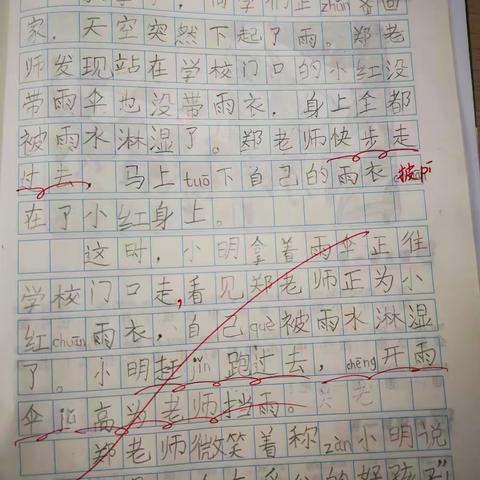 同学们正zhǔn备回
家，天空突然下起了雨。郑老
师发现站在学校门口的小红没
带雨伞也没带雨衣，身上全都
被雨水淋湿了。郑老师快步走
过去，马上tuō下自己的雨衣披pī
在了小红身上。
这时，小明拿着雨伞正往
学校门口走,看见郑老师正为小
红chuān雨衣，自己què被雨水淋湿
了。小明赶jǐn跑过去，chēng开雨
伞jǔ高为老师挡雨。
郑老师微笑着称zàn小明说
的好孩子"